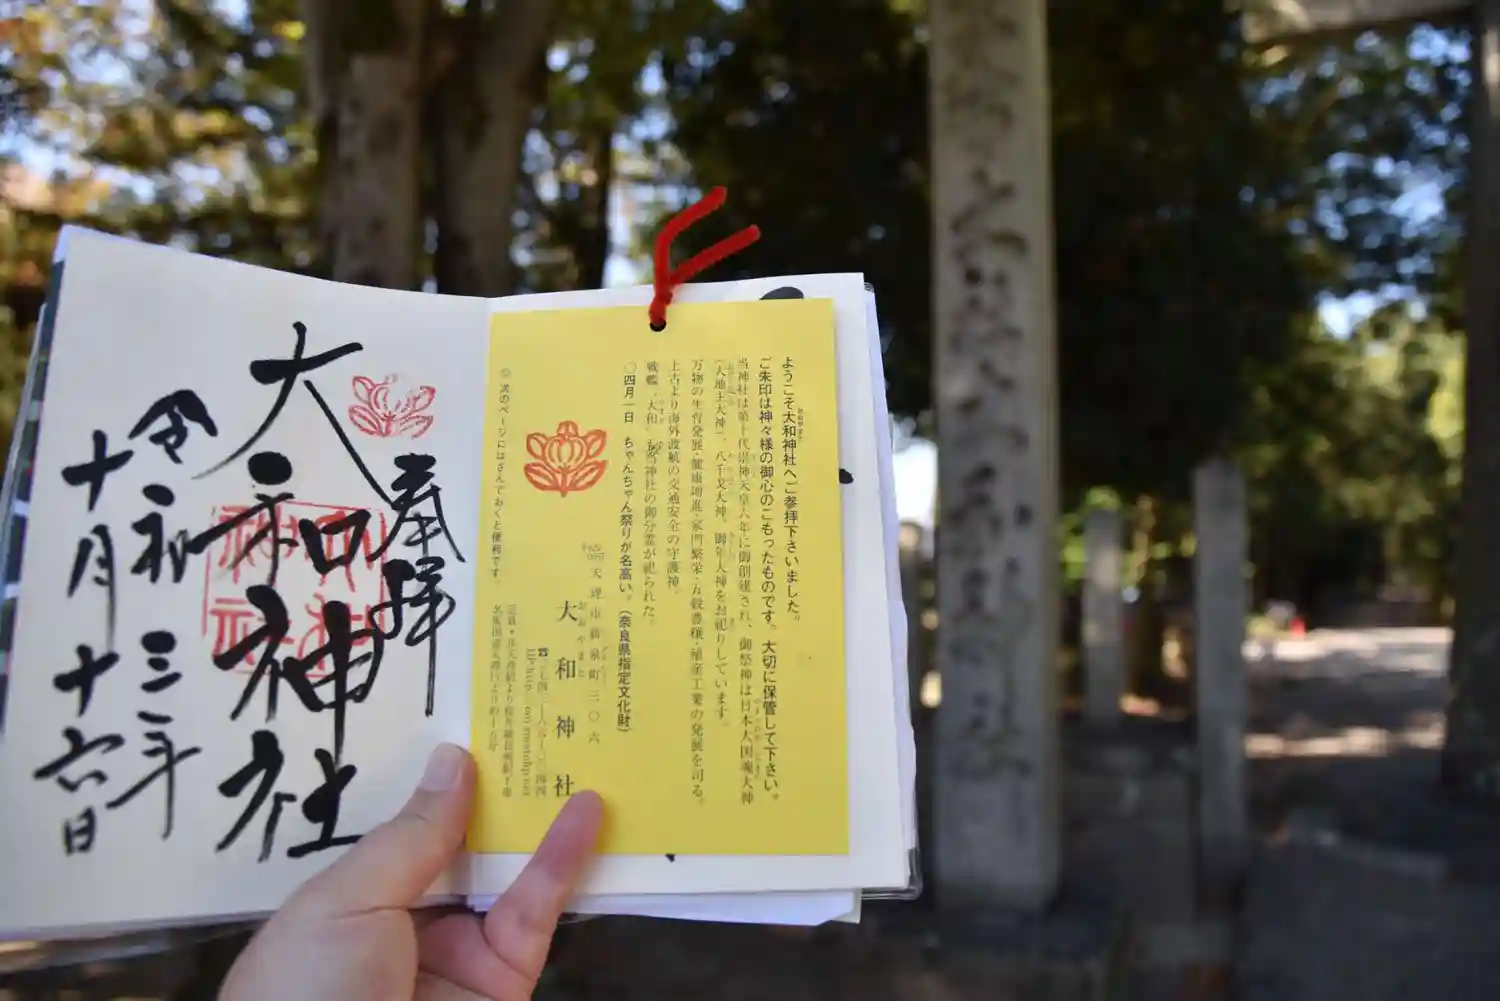 奉拝
大和神社
令和三年
十月十六日
ようこそ大和神社へご参拝下さいました。
ご朱印は神々様の御心のこもったものです。大切に保管して下さい。
当神社は第十代崇神天皇六年に御創建され、御祭神は日本大国魂大神
(大地主大神)、八千戈大神、御年大神をお祀りしています。
万物の生育発展・健康増進・家門繁栄・五穀豊穣・殖産工業の発展を司る。
上古より海外渡航の交通安全の守護神。
戦艦「大和」も当神社の御分霊が祀られた。
〇四月一日 ちゃんちゃん祭りが名高い。(奈良県指定文化財)
天理市新泉町三〇六
大和神社
おおやまと
◎次のページにはさんでおくと便利です。